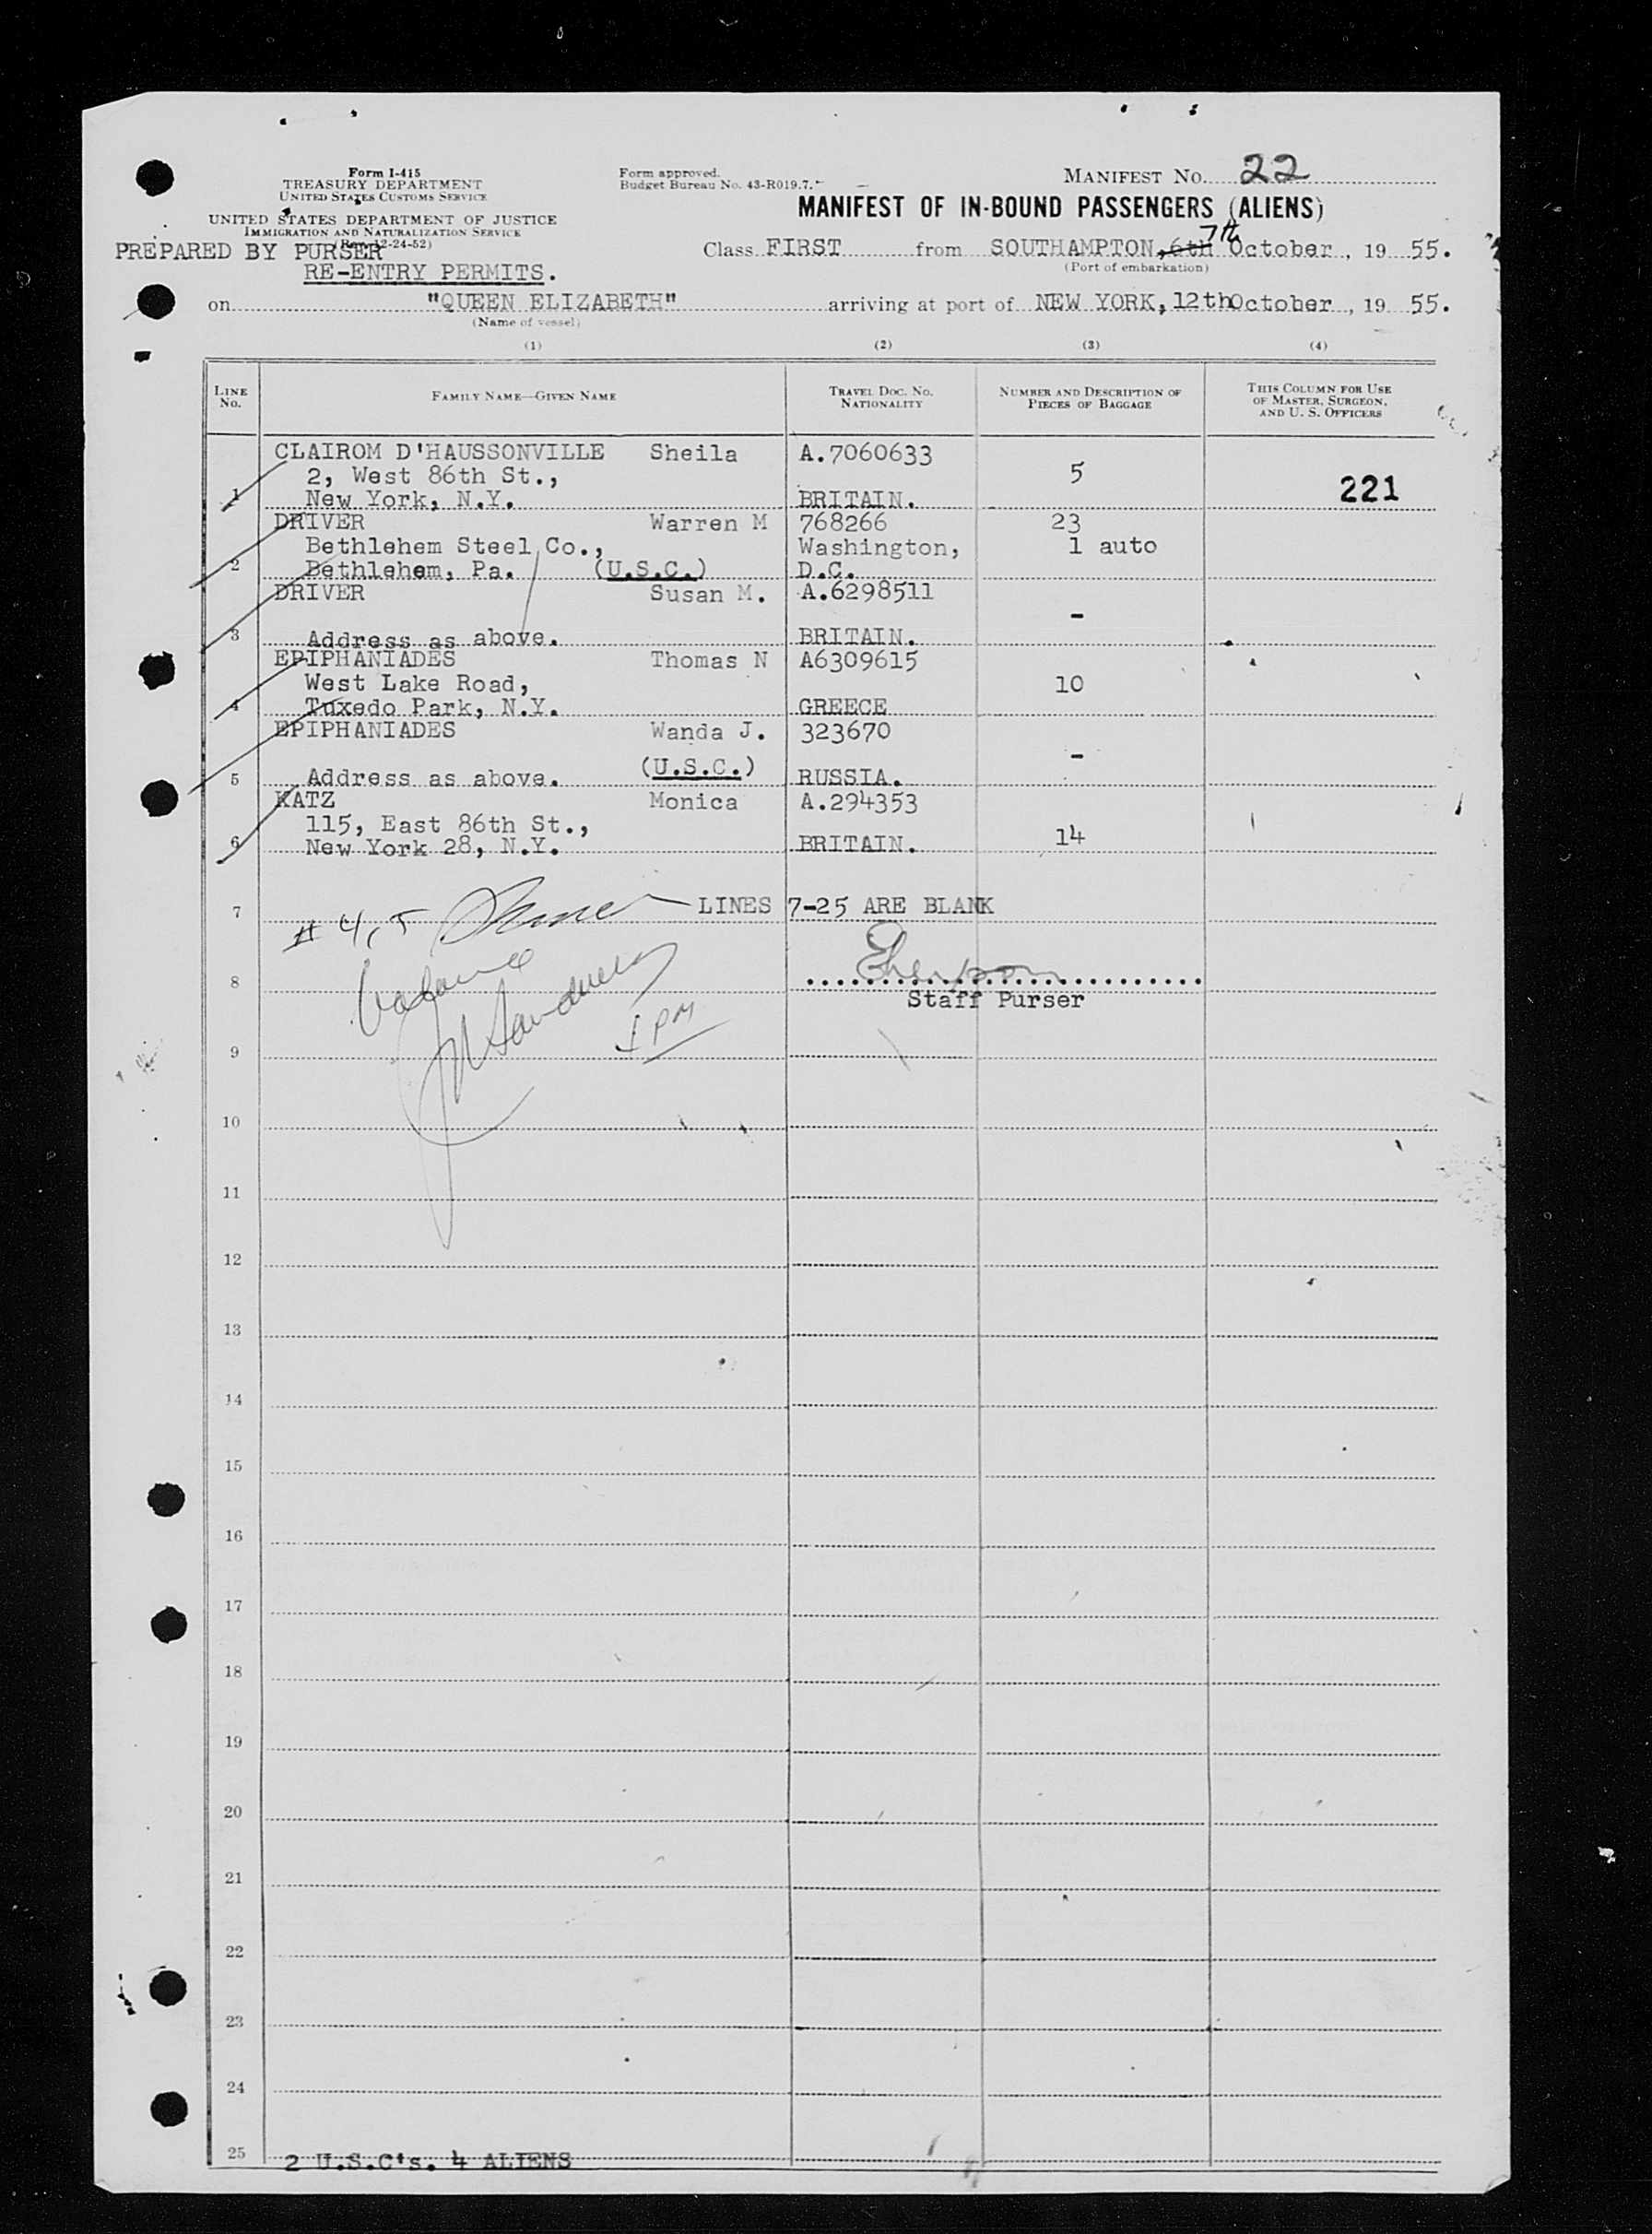 Form I-415
TREASURY DEPARTMENT
UNITED STATES CUSTOMS SERVICE
UNITED STATES DEPARTMENT OF JUSTICE
IMMIGRATION AND NATURALIZATION SERVICE
(Rev. 12-24-52)
PREPARED BY PURSER
RE-ENTRY PERMITS.
Form approved.
Budget Bureau No. 43-R019.7.
MANIFEST NO. 22
MANIFEST OF IN-BOUND PASSENGERS (ALIENS)
7th
Class FIRST from SOUTHAMPTON, 6th October, 19 55.
(Port of embarkation)
on "QUEEN ELIZABETH" arriving at port of NEW YORK, 12th October, 19 55.
(Name of vessel)
(1) (2) (3) (4)
LINE No.
FAMILY NAME—GIVEN NAME
TRAVEL DOC. NO. NATIONALITY
NUMBER AND DESCRIPTION OF PIECES OF BAGGAGE
THIS COLUMN FOR USE OF MASTER, SURGEON, AND U. S. OFFICERS
CLAIROM D'HAUSSONVILLE Sheila A.7060633
2, West 86th St., 5
1 New York, N.Y. BRITAIN. 221
DRIVER Warren M 768266 23
Bethlehem Steel Co., Washington, 1 auto
2 Bethlehem, Pa. (U.S.C.) D.C.
DRIVER Susan M. A.6298511
-
3 Address as above. BRITAIN.
EPIPHANIADES Thomas N A6309615
West Lake Road, 10
4 Tuxedo Park, N.Y. GREECE
EPIPHANIADES Wanda J. 323670
(U.S.C.) -
5 Address as above. RUSSIA.
KATZ Monica A.294353
115, East 86th St.,
6 New York 28, N.Y. BRITAIN. 14
7 LINES 7-25 ARE BLANK
# 4, 5
8
Staff Purser
9
10
11
12
13
14
15
16
17
18
19
20
21
22
23
24
25 2 U.S.C's. 4 ALIENS